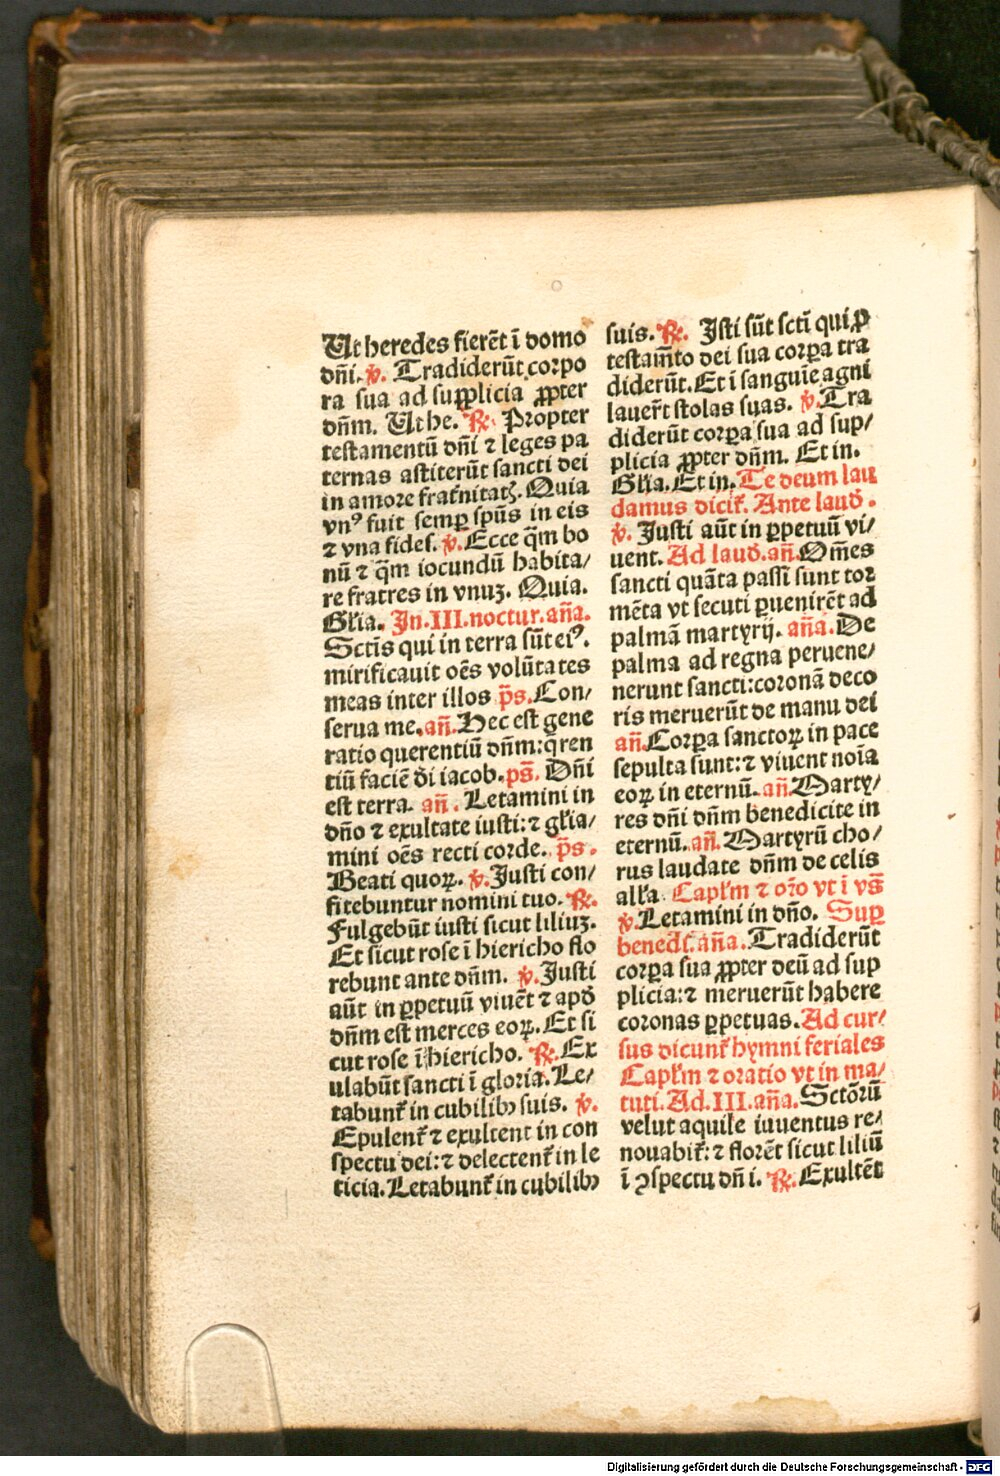 Ut heredes fierēt ī domo
dn̄i. ℣. Tradiderūt corpo
ra sua ad supplicia ꝓpter
dn̄m. Ut he. ℟. Propter
testamentū dn̄i ⁊ leges pa
ternas astiterūt sancti dei
in amore frat̄nitatꝫ. Quia
vnꝰ fuit semꝑ spūs in eis
⁊ vna fides. ℣. Ecce q̄m bo
nū ⁊ q̄m iocundū habita/
re fratres in vnuꝫ. Quia.
Gl'ia. In.III.noctur.an̄a.
Sctīs qui in terra sūt eiꝰ.
mirificauit oēs volūtates
meas inter illos p̄s. Con/
serua me. an̄. Hec est gene
ratio querentiū dn̄m: q̄ren
tiū faciē d̄i iacob. ps̄. Dn̄i
est terra. an̄. Letamini in
dn̄o ⁊ exultate iusti: ⁊ gl'ia/
mini oēs recti corde. p̄s.
Beati quoꝝ. ℣. Justi con/
fitebuntur nomini tuo. ℟.
Fulgebūt iusti sicut liliuꝫ.
Et sicut rose ī hiericho flo
rebunt ante dn̄m. ℣. Justi
aūt in ꝑpetuū viuēt ⁊ apd̄
dn̄m est merces eoꝝ. Et si
cut rose ī hiericho. ℟. Ex
ulabūt sancti ī gloria. Le/
tabunt̄ in cubilibꝫ suis. ℣.
Epulent̄ ⁊ exultent in con
spectu dei: ⁊ delectent̄ in le
ticia. Letabunt̄ in cubilibꝫ
suis. ℟. Isti sūt sctī qui ꝓ
testam̄to dei sua corꝑa tra
diderūt. Et ī sanguīe agni
lauer̄t stolas suas. ℣. Tra
diderūt corꝑa sua ad sup/
plicia ꝓpter dn̄m. Et in.
Gl'ia. Et in. Te deum lau
damus dicit̄. Ante laud̄.
℣. Justi aūt in ꝑpetuū vi/
uent. Ad laud̄. an̄. Om̄es
sancti quāta passi sunt tor
mēta vt secuti ꝑuenirēt ad
palmā martyrij. an̄a. De
palma ad regna peruene/
nerunt sancti: coronā deco
ris meruerūt de manu dei
an̄. Corꝑa sanctoꝝ in pace
sepulta sunt: ⁊ viuent noīa
eoꝝ in eternū. an̄. Marty/
res dn̄i dn̄m benedicite in
eternū. an̄. Martyrū cho/
rus laudate dn̄m de celis
all'a. Capl'm ⁊ or̄o vt ī vs̄
℣. Letamini in dn̄o. Suꝑ
bened̄t. an̄a. Tradiderūt
corꝑa sua ꝓpter deū ad sup
plicia: ⁊ meruerūt habere
coronas ꝑpetuas. Ad cur/
sus dicunt̄ hymni feriales
Capl'm ⁊ oratio vt in ma/
tuti. Ad.III.an̄a. Sctōrū
velut aquile iuuentus re/
nouabit̄: ⁊ florēt sicut liliū
ī ꝯspectu dn̄i. ℟. Exultēt
Digitalisierung gefördert durch die Deutsche Forschungsgemeinschaft - DFG